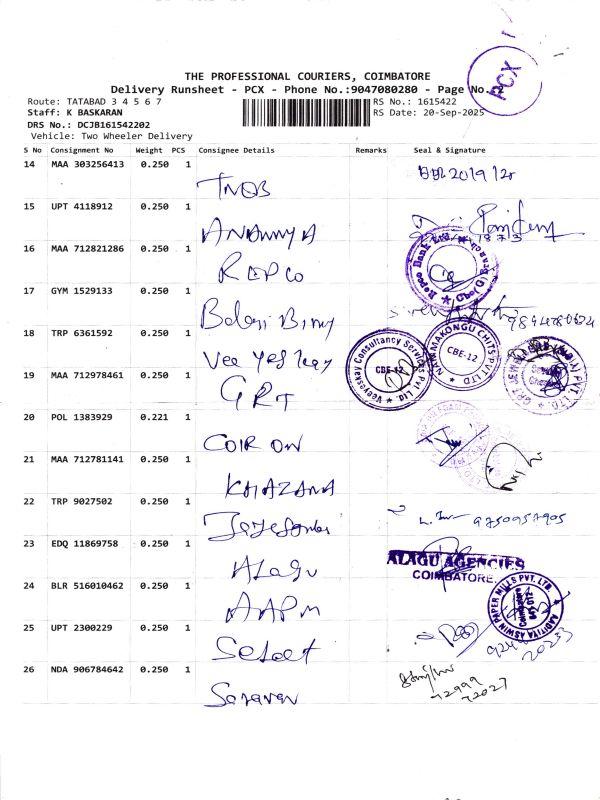 PCX
THE PROFESSIONAL COURIERS, COIMBATORE
Delivery Runsheet - PCX - Phone No.:9047080280 - Page No.:2
Route: TATABAD 3 4 5 6 7
RS No.: 1615422
Staff: K BASKARAN
RS Date: 20-Sep-2025
DRS No.: DCJB161542202
Vehicle: Two Wheeler Delivery
S No Consignment No Weight PCS Consignee Details Remarks Seal & Signature
14 MAA 303256413 0.250 1
TNEB
15 UPT 4118912 0.250 1
ANANNYA
16 MAA 712821286 0.250 1
REPCO
Repco Bank Ltd.
17 GYM 1529133 0.250 1
Balaji Bimy
9894780624
18 TRP 6361592 0.250 1
Vee yes kay
Veeyeskay Consultancy Services Pvt. Ltd. CBE-12
NAMAKONGU CHITS PVT LTD CBE-12
19 MAA 712978461 0.250 1
GRT
20 POL 1383929 0.221 1
COIR ON
21 MAA 712781141 0.250 1
KHAZANA
22 TRP 9027502 0.250 1
9750957905
23 EDQ 11869758 0.250 1
Alagu
ALAGU AGENCIES
COIMBATORE.
24 BLR 516010462 0.250 1
AAPM
AADITYA ASWIN PAPER MILLS PVT. LTD.
25 UPT 2300229 0.250 1
Select
26 NDA 906784642 0.250 1
Saravan
72999
72027